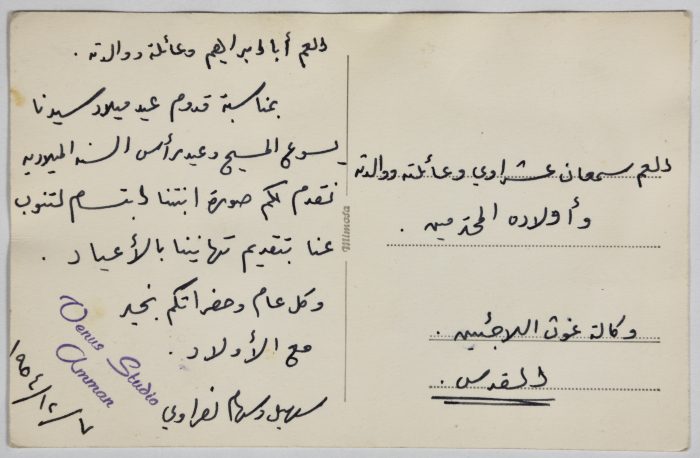 العم أبا ابراهيم وعائلة ووالدته .
بمناسبة قدوم عيد ميلاد سيدنا
يسوع المسيح وعيد رأس السنة الميلادية
نتقدم لكم صورة ابنتنا ابتسام لتنوب
عنا بتقديم تهانينا بالأعياد .
وكل عام وحضراتكم بخير
مع الأولاد .
سهيل وسهام نصراوي
١٩٥٤/١٢/٧
Venus Studio
Amman
Mimosa
العم سمعان عشراوي وعائلته ووالدته
وأولاده المحترمين .
وكالة غوث اللاجئين .
القدس .